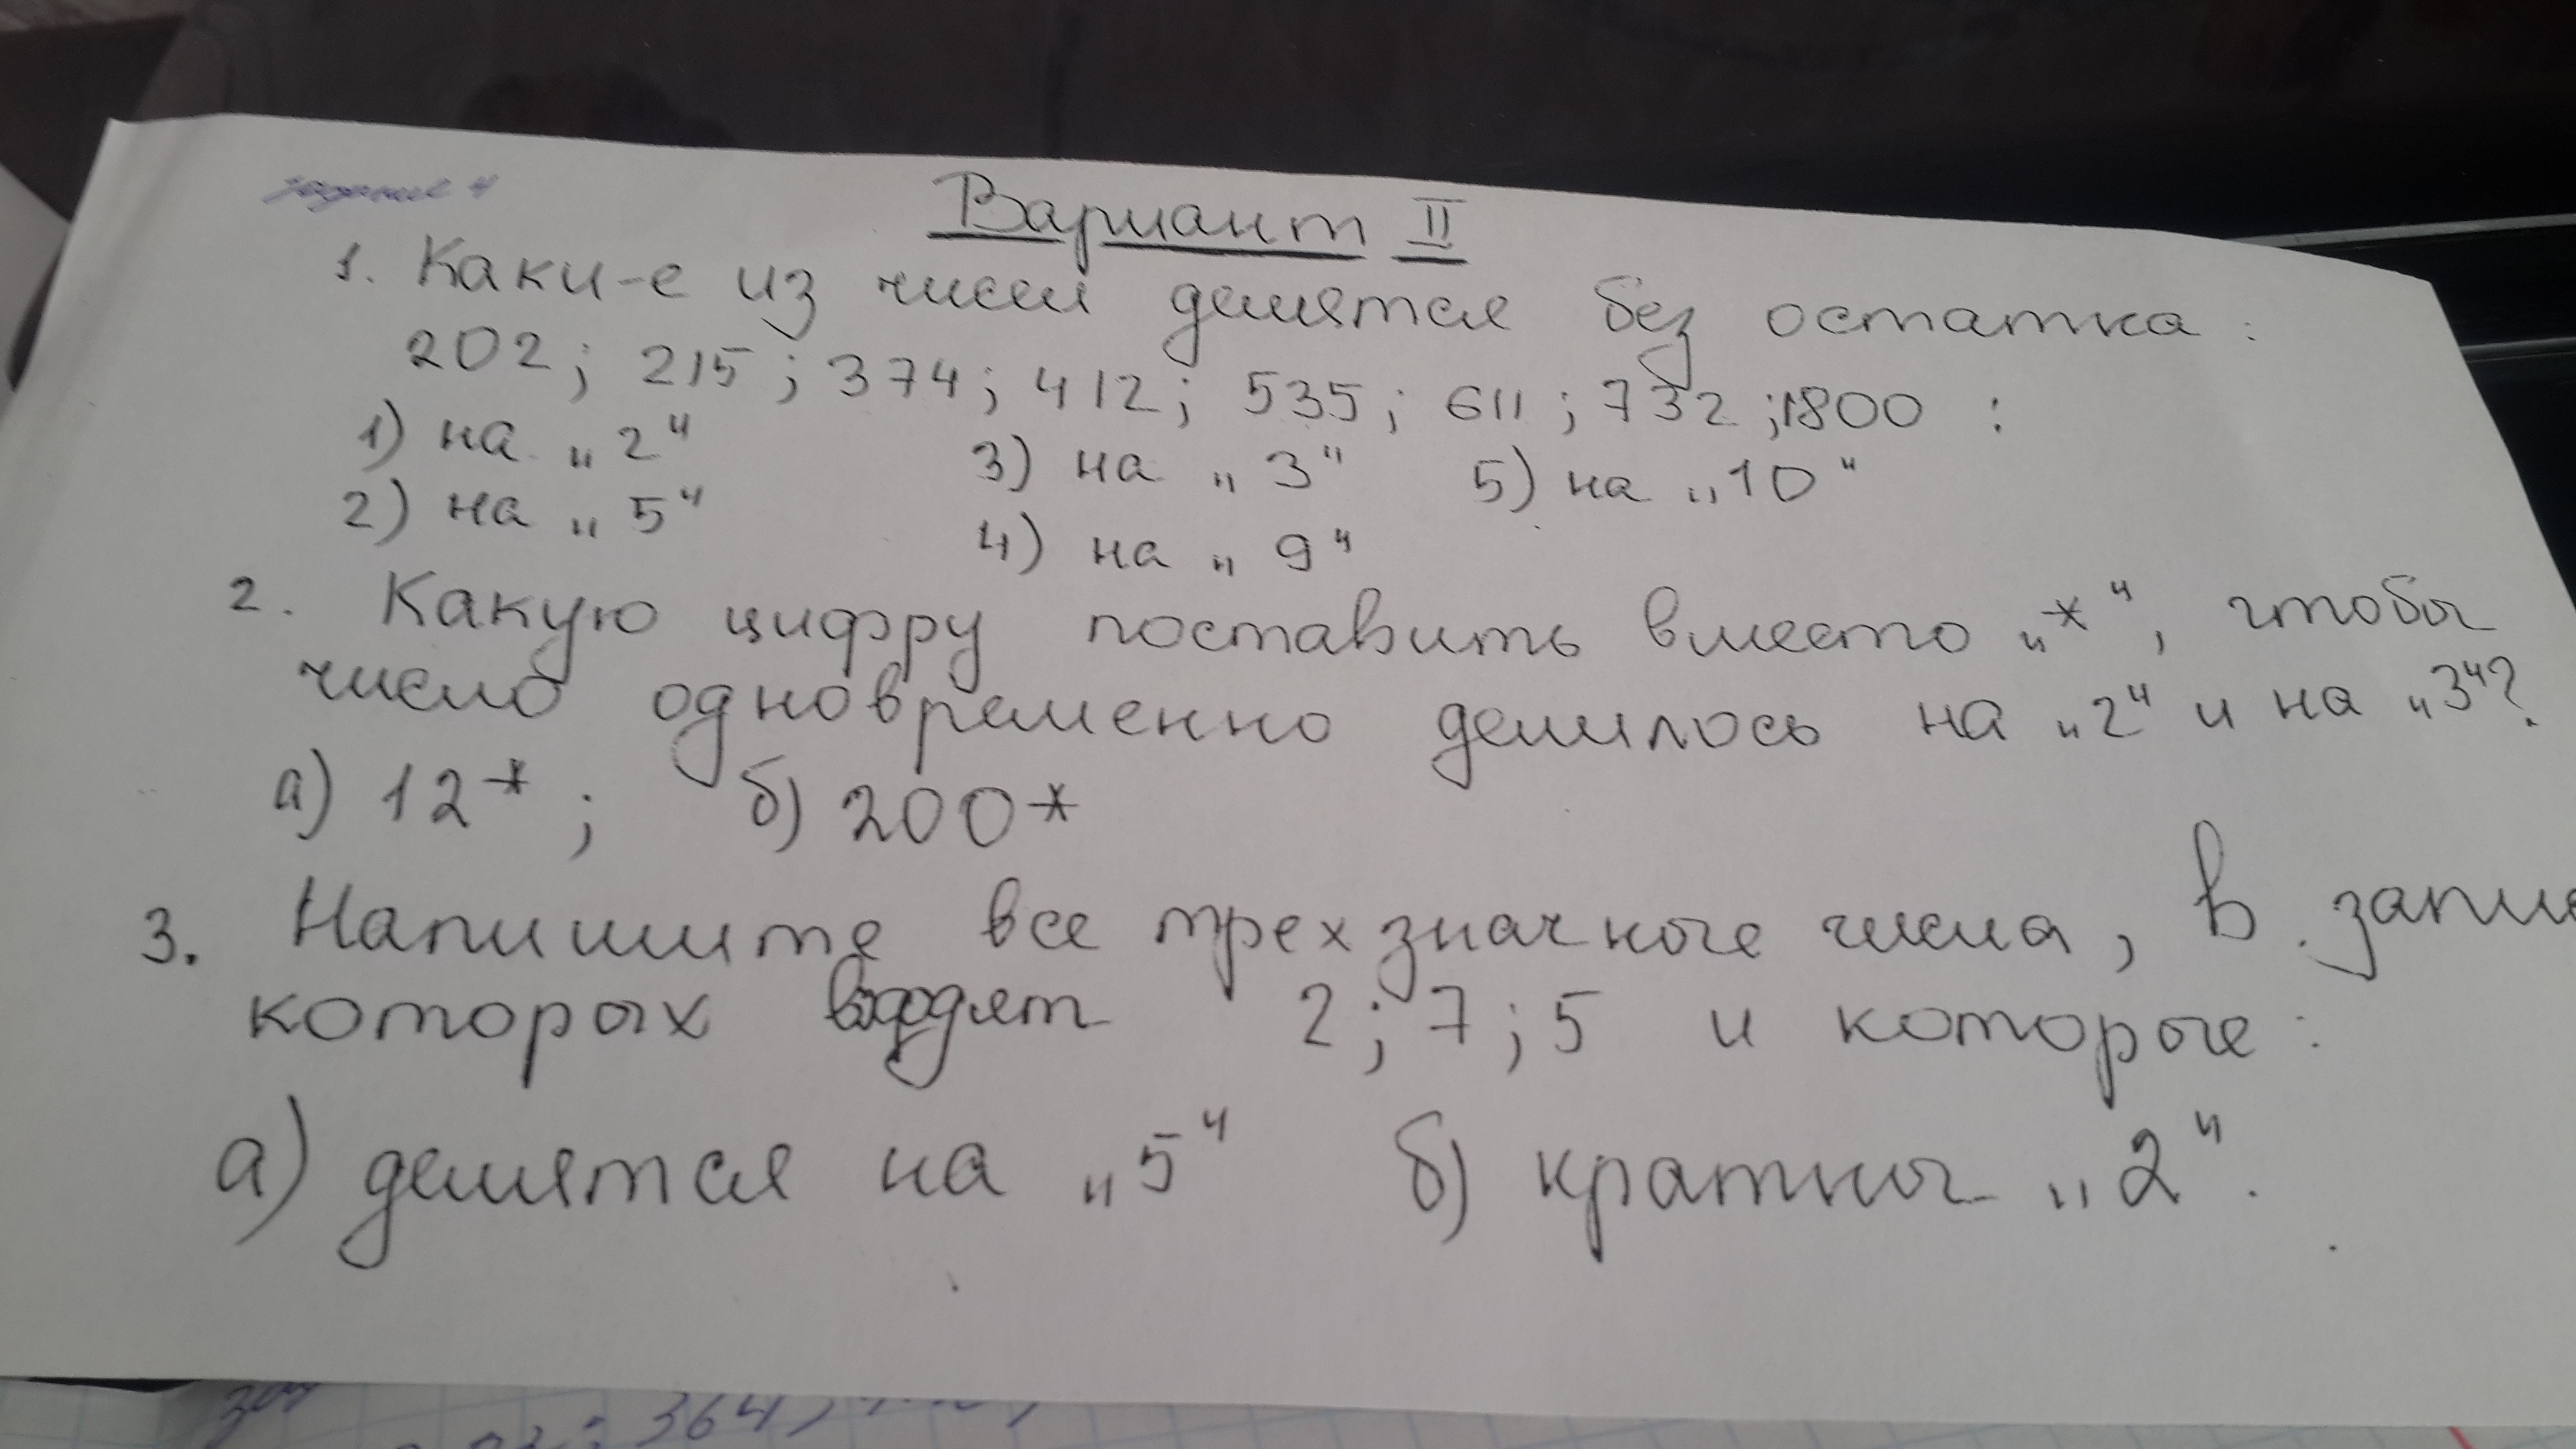 задание 4
Вариант II
1. Каки-е из чисел делятся без остатка:
202; 215; 374; 412; 535; 611; 732; 1800 :
1) на „2“ 3) на „3“ 5) на „10“
2) на „5“ 4) на „9“
2. Какую цифру поставить вместо „*“, чтобы
число одновременно делилось на „2“ и на „3“?
а) 12*; б) 200*
3. Напишите все трехзначные числа, в запис
которых входят 2; 7; 5 и которые:
а) делятся на „5“ б) кратны „2“.
364;